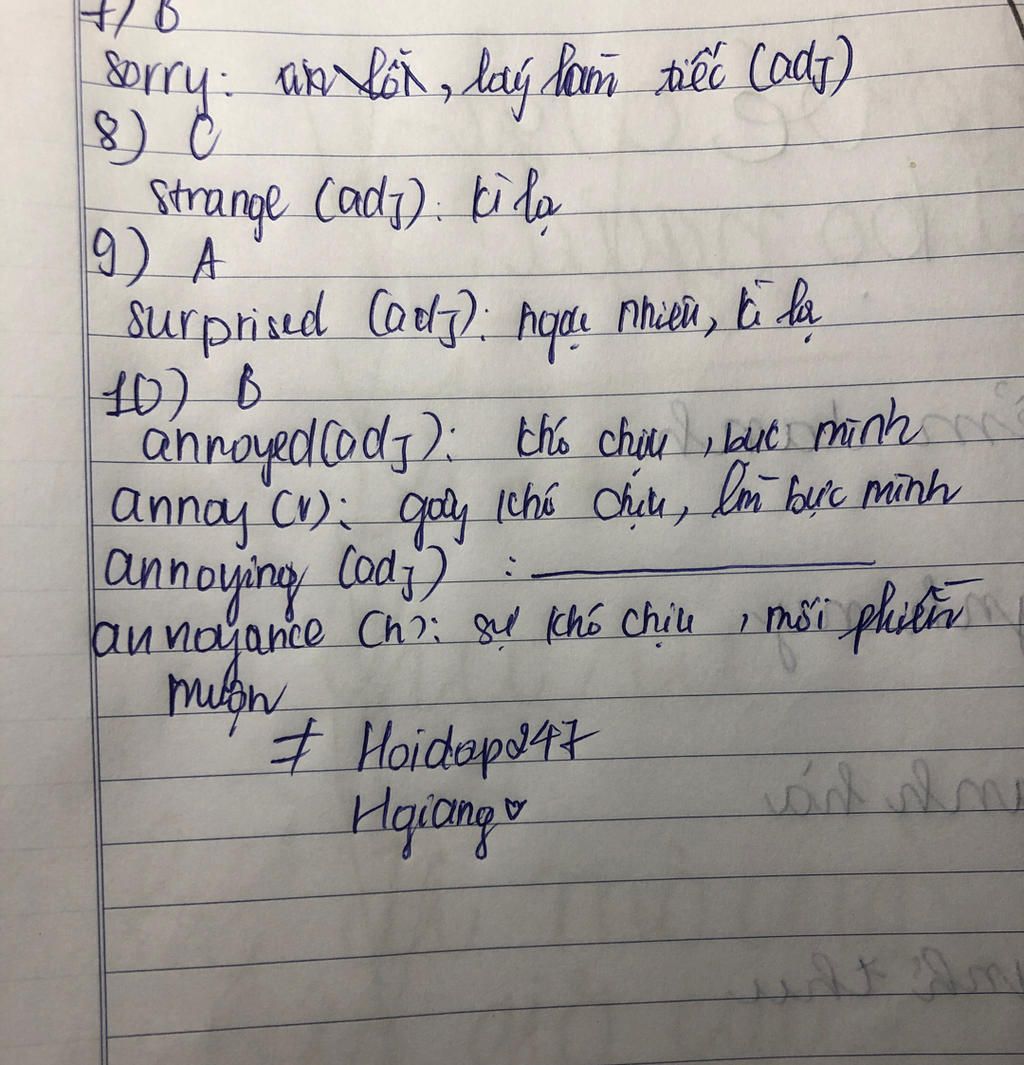 7) B
sorry: xin lỗi, lấy làm tiếc (adj)
8) C
strange (adj): kì lạ
9) A
surprised (adj): ngạc nhiên, kì lạ
10) B
annoyed (adj): khó chịu, bực mình
annoy (v): gây khó chịu, làm bực mình
annoying (adj) :
annoyance (n): sự khó chịu, mối phiền
muộn
# Hoidap247
Hgiang♡